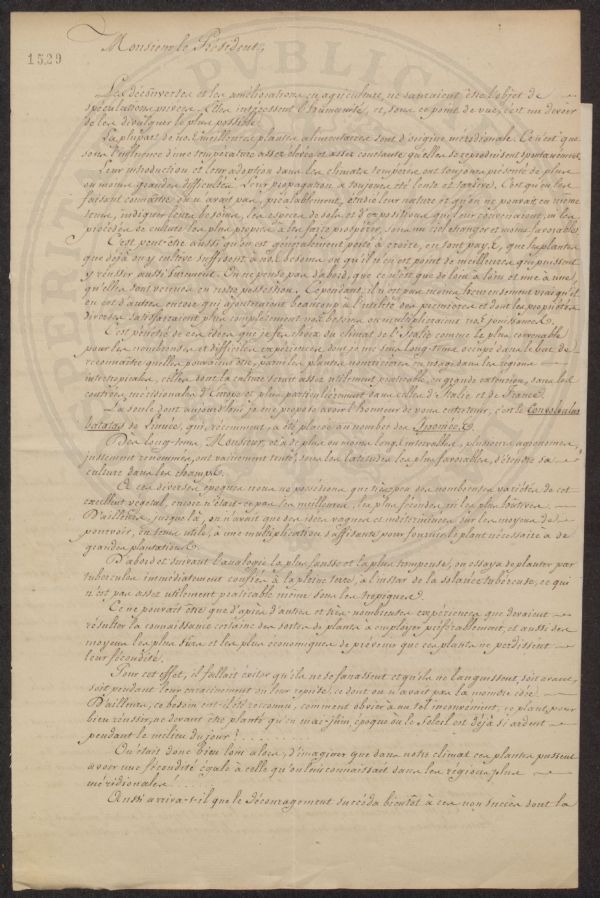 1529
Monsieur le Président,
Les découvertes et les améliorations en agriculture, ne sauraient être l'objet de
spéculations privées. Elles intéressent l'humanité, et, sous ce point de vue, c'est un devoir
de les divulguer le plus possible.
La plupart de nos meilleures plantes alimentaires sont d'origine méridionale. Ce n'est que
sous l'influence d'une température assez élevée et assez constante qu'elles se reproduisent spontanément.
Leur introduction et leur adoption dans les climats tempérés ont toujours présenté de plus
ou moins grandes difficultés. Leur propagation a toujours été lente et tardive. C'est qu'en les
faisant connaître on n'avait pas, préalablement, étudié leur nature et qu'on ne pouvait, en même
tems, indiquer leurs besoins, les espèces de sols et d'expositions qui leur convenaient, ni les
procédés de culture les plus propres à les faire prospérer, sous un ciel étranger et moins favorable.
C'est peut-être aussi qu'on est généralement porté à croire, en tout pays, que les plantes
que déjà on y cultive suffisent à nos besoins ou qu'il n'en est point de meilleures qui puissent
y réussir aussi sûrement. On ne pense pas d'abord, que ce n'est que de loin à loin et une à une,
qu'elles sont venues en notre possession. Cependant, il n'est pas moins heureusement vrai qu'il
en est d'autres encore qui ajouteraient beaucoup à l'utilité des premières et dont les propriétés
diverses satisferaient plus complètement nos besoins ou multiplieraient nos jouissances.
C'est pénétré de ces idées que je fis choix du climat de l'Italie comme le plus convenable
pour les nombreuses et difficiles expériences dont je me suis long-tems occupé dans le but de
reconnaître quelles pourraient être, parmi les plantes nourricières en usage dans les régions
intertropicales, celles dont la culture serait assez utilement praticable, en grande extension, dans les
contrées méridionales d'Europe et plus particulièrement dans celles d'Italie et de France.
La seule dont aujourd'hui je me propose avoir l'honneur de vous entretenir, c'est le Convolvulus
batatas de Linnée, qui, récemment, a été placée au nombre des Ipomées.
Dès long-tems, Monsieur, et à de plus ou moins longs intervalles, plusieurs agronomes,
justement renommés, ont vainement tenté, sous les latitudes les plus favorables, d'étendre sa
culture dans les champs.
A ces diverses époques nous ne possédions que très peu des nombreuses variétés de cet
excellent végétal, encore n'était-ce pas les meilleures, les plus fécondes, ni les plus hâtives.
D'ailleurs, jusques là, on n'avait que des idées vagues et indéterminées sur les moyens de
pourvoir, en tems utile, à une multiplication suffisante pour fournir le plant nécessaire à de
grandes plantations.
D'abord et suivant l'analogie la plus fausse et la plus trompeuse, on essaya de planter par
tubercules immédiatement confiés à la pleine terre, à l'instar de la solanée tubéreuse, ce qui
n'est pas assez utilement praticable même sous les tropiques.
Ce ne pouvait être que d'après d'autres et très nombreuses expériences que devaient
résulter la connaissance certaine des sortes de plants à employer préférablement, et aussi des
moyens les plus sûrs et les plus économiques de prévenir que ces plants ne perdissent
leur fécondité.
Pour cet effet, il fallait éviter qu'ils ne se fanassent et qu'ils ne languissent, soit avant,
soit pendant leur enracinement ou leur reprise, ce dont on n'avait pas la moindre idée.
D'ailleurs, ce besoin eut-il été reconnu, comment obvier à un tel inconvénient, ce plant, pour
bien réussir, ne devant être planté qu'en mai-juin, époque où le soleil est déjà si ardent
pendant le milieu du jour! . . . .
On était donc bien loin alors, d'imaginer que dans notre climat ces plantes pussent
avoir une fécondité égale à celle qu'on leur connaissait dans les régions plus
méridionales! . . . .
Aussi arriva-t-il que le découragement succéda bientôt à ces non succès dont la